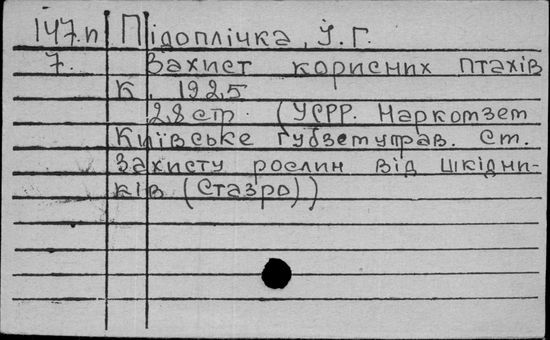 147.п Підоплічка, І. Г.
7. Захист корисних птахів
К. 1925
28 стр. (УСРР. Наркомзет
Київське Губзетуправ. Ст.
Захисту рослин від шкідни-
ків (Стазро))